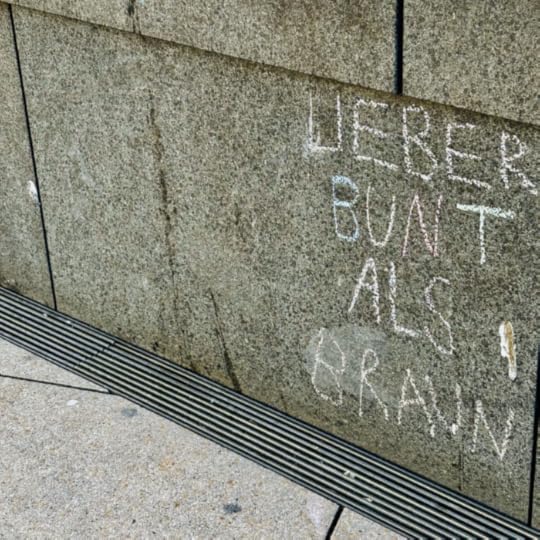 LIEBER
BUNT
ALS
BRAUN